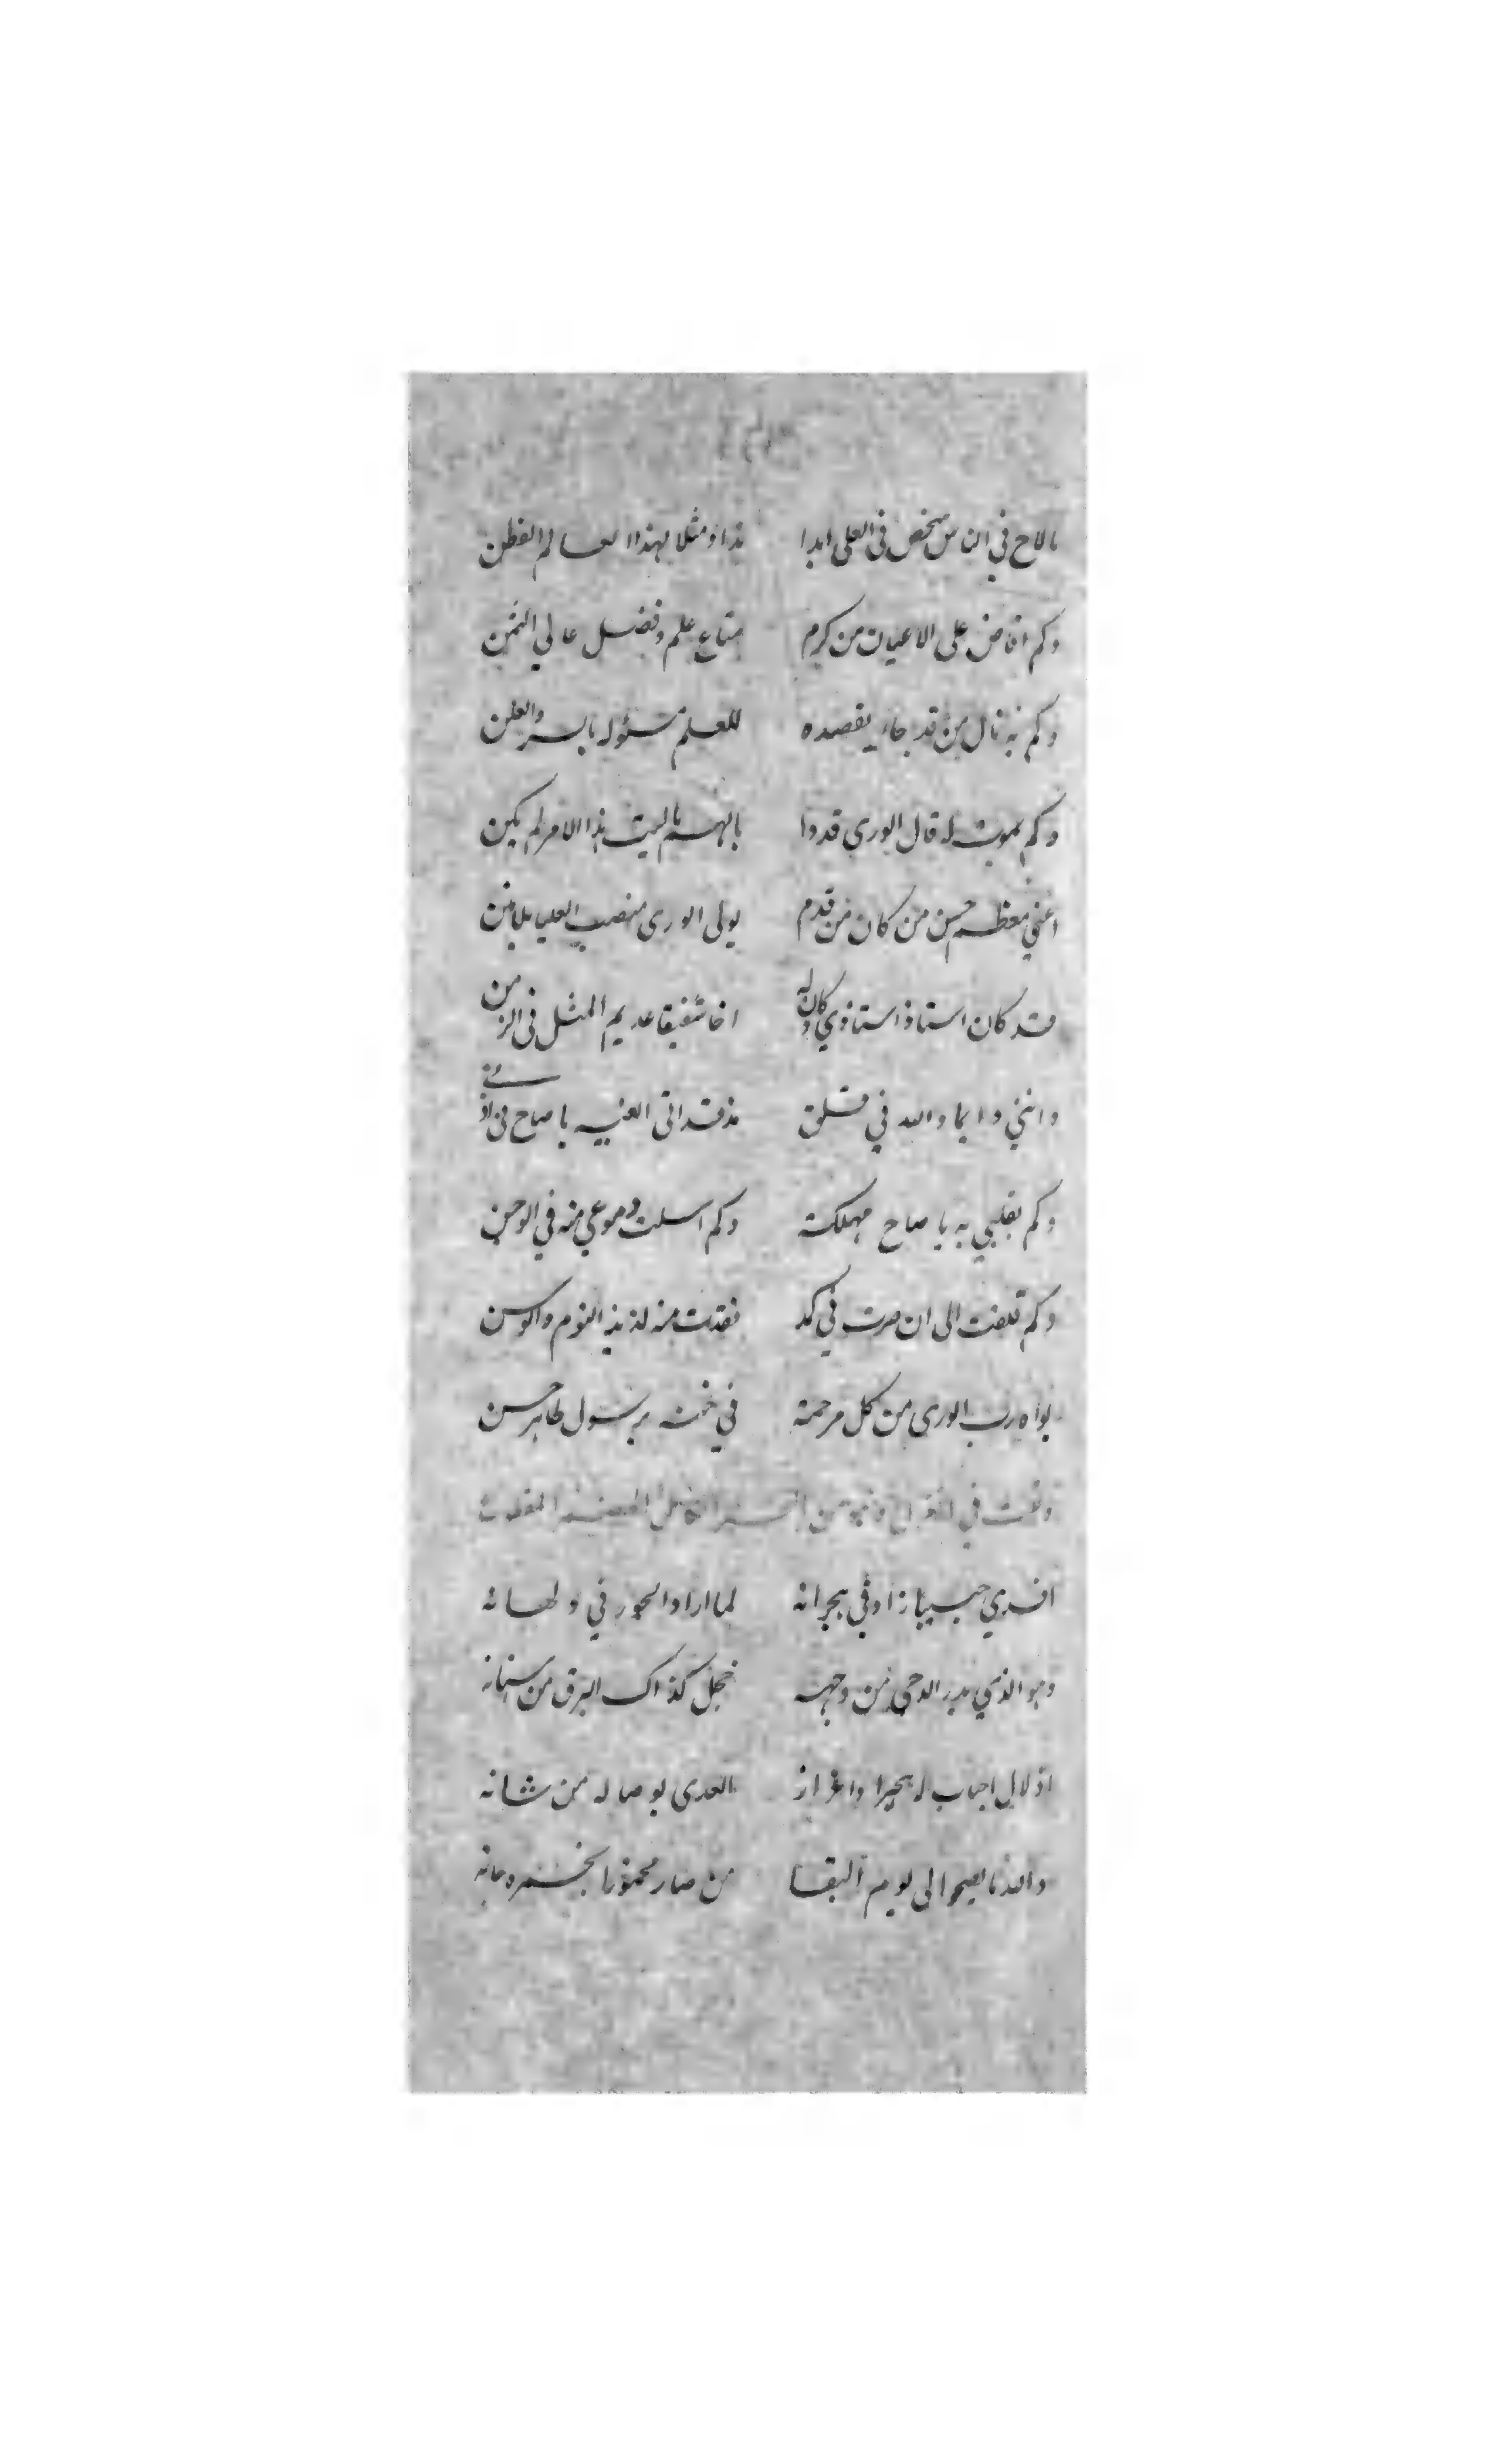 مالاح في الناس شخص في العلى ابدا ندا ومثلا لهذا العالم الفطن
وكم افاض على الاعيان من كرم متاع علم وفضل عالي الثمن
وكم به نال من قد جاء يقصده للعلم مسئوله بالسر والعلن
وكم بموت له قال الورى بالهم ياليت هذا الامر لم يكن
اعني معظم حسن من كان من قدم يولى الورى منصب العليا بلا منن
قد كان استاذ استاذي وكان له اخا شفيقا عديم المثل في الزمن
وانني دايما والله في قلق مذ قد اتى يا صاح في
وكم بقلبي به يا صاح مهلكة وكم اسلت دموعي منه في الوجن
وكم قلقت الى ان صرت في كمد فقدت منه لذيذ النوم والوسن
بواه رب الورى من كل مرحمة في برسول طاهر حسن
وقلت في
افدي حبيبا زاد في هجرانه لما اراد الجور في ولهانه
وهو الذي بدر الدجى من وجهه خجل كذاك البرق من اسنانه
اذلال احباب له هجرا واعزاز العدى بوصاله من شانه
والله ما يصحو الى يوم البقا من صار مخمورا بخمرة حانه